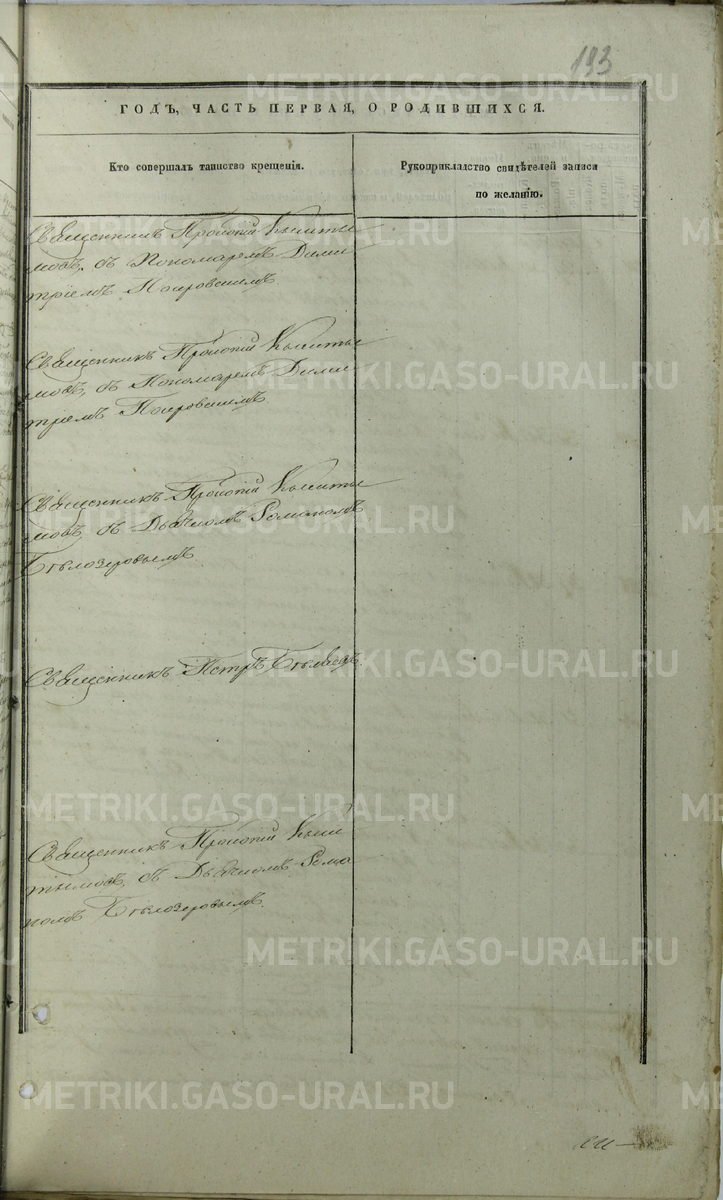 193
ГОДЪ, ЧАСТЬ ПЕРВАЯ, О РОДИВШИХСЯ.
Кто совершалъ таинство крещенія.
Рукоприкладство свидѣтелей записи
по желанію.
Священникъ Прокопій Кышты
мовъ, съ Пономаремъ Дими
тріемъ Покровскимъ
Священникъ Прокопій Кышты
мовъ, съ Пономаремъ Дими
тріемъ Покровскимъ
Священникъ Прокопій Кышты
мовъ, съ Дьячкомъ Романомъ
Бѣлозеровымъ
Священникъ Петръ
Священникъ Прокопій Кыш
тымовъ, съ Дьячкомъ Рома
номъ Бѣлозеровымъ.
METRIKI.GASO-URAL.RU